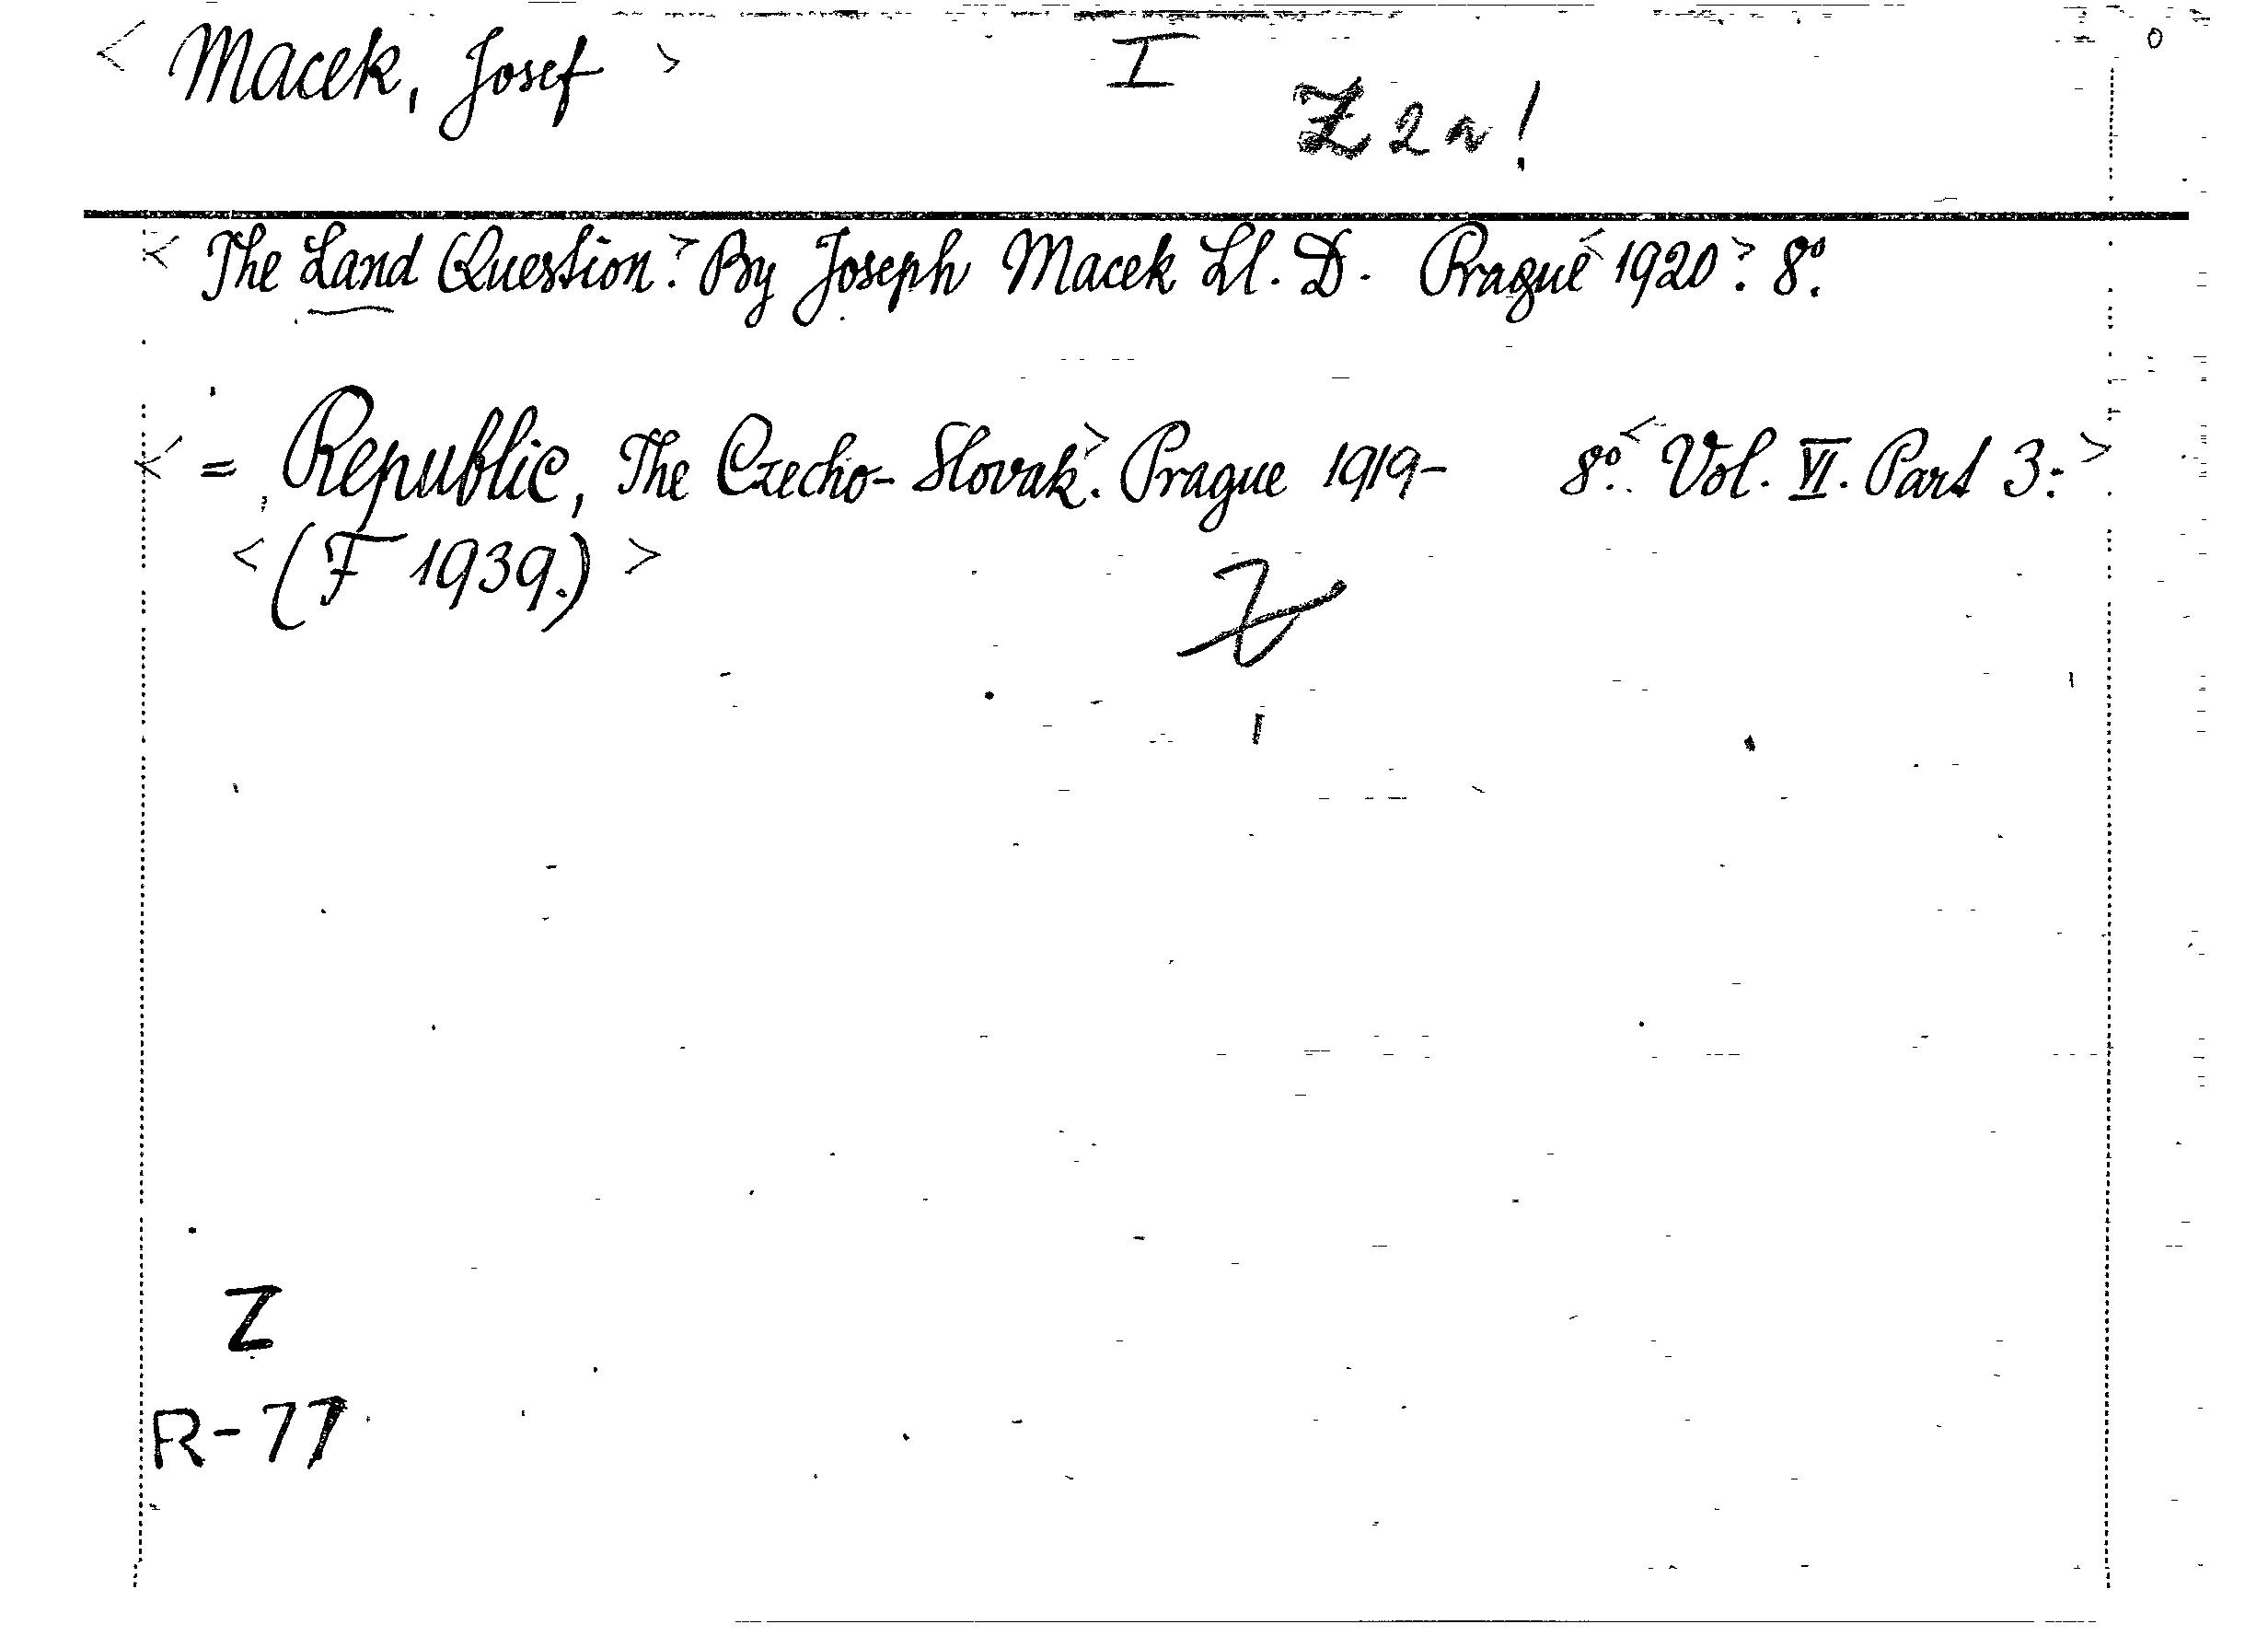 < Macek, Josef > I
Z 2 a!
< The Land Question.> By Joseph Macek Ll. D. Prague < 1920 >. 8º.
< = Republic, The Czecho-Slovak.> Prague 1919- 8º. < Vol. VI. Part 3. >
< (F 1939.) >
Z
R-77